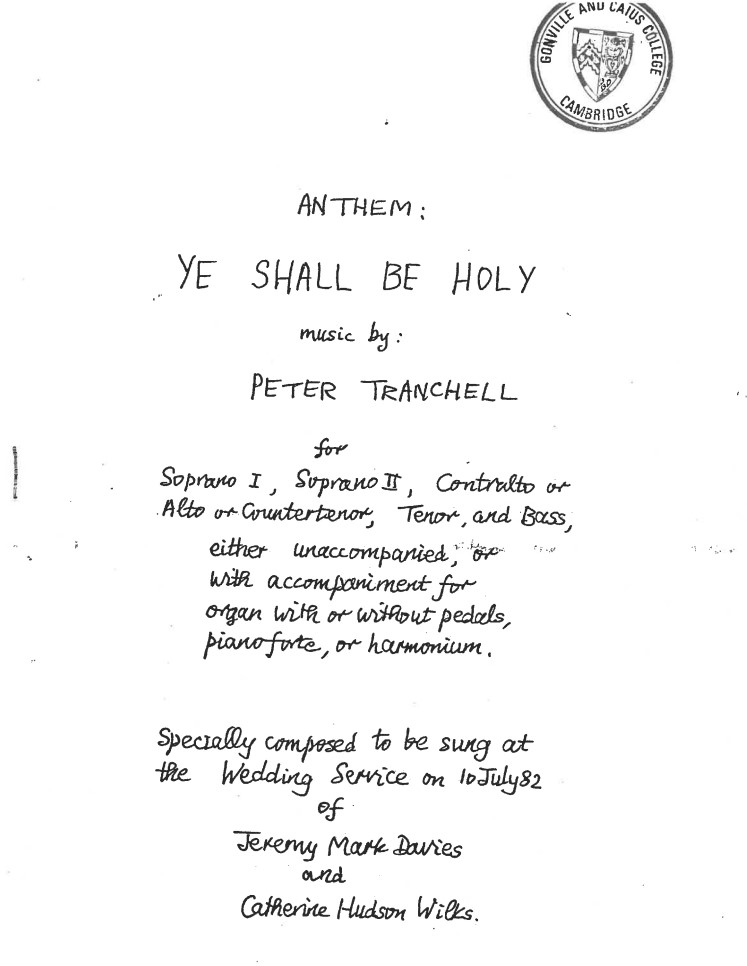 GONVILLE AND CAIUS COLLEGE
CAMBRIDGE
ANTHEM:
YE SHALL BE HOLY
music by:
PETER TRANCHELL
for
Soprano I, Soprano II, Contralto or
Alto or Countertenor, Tenor, and Bass,
either unaccompanied, or
with accompaniment for
organ with or without pedals,
pianoforte, or harmonium.
Specially composed to be sung at
the Wedding Service on 10 July 82
of
Jeremy Mark Davies
and
Catherine Hudson Wilks.